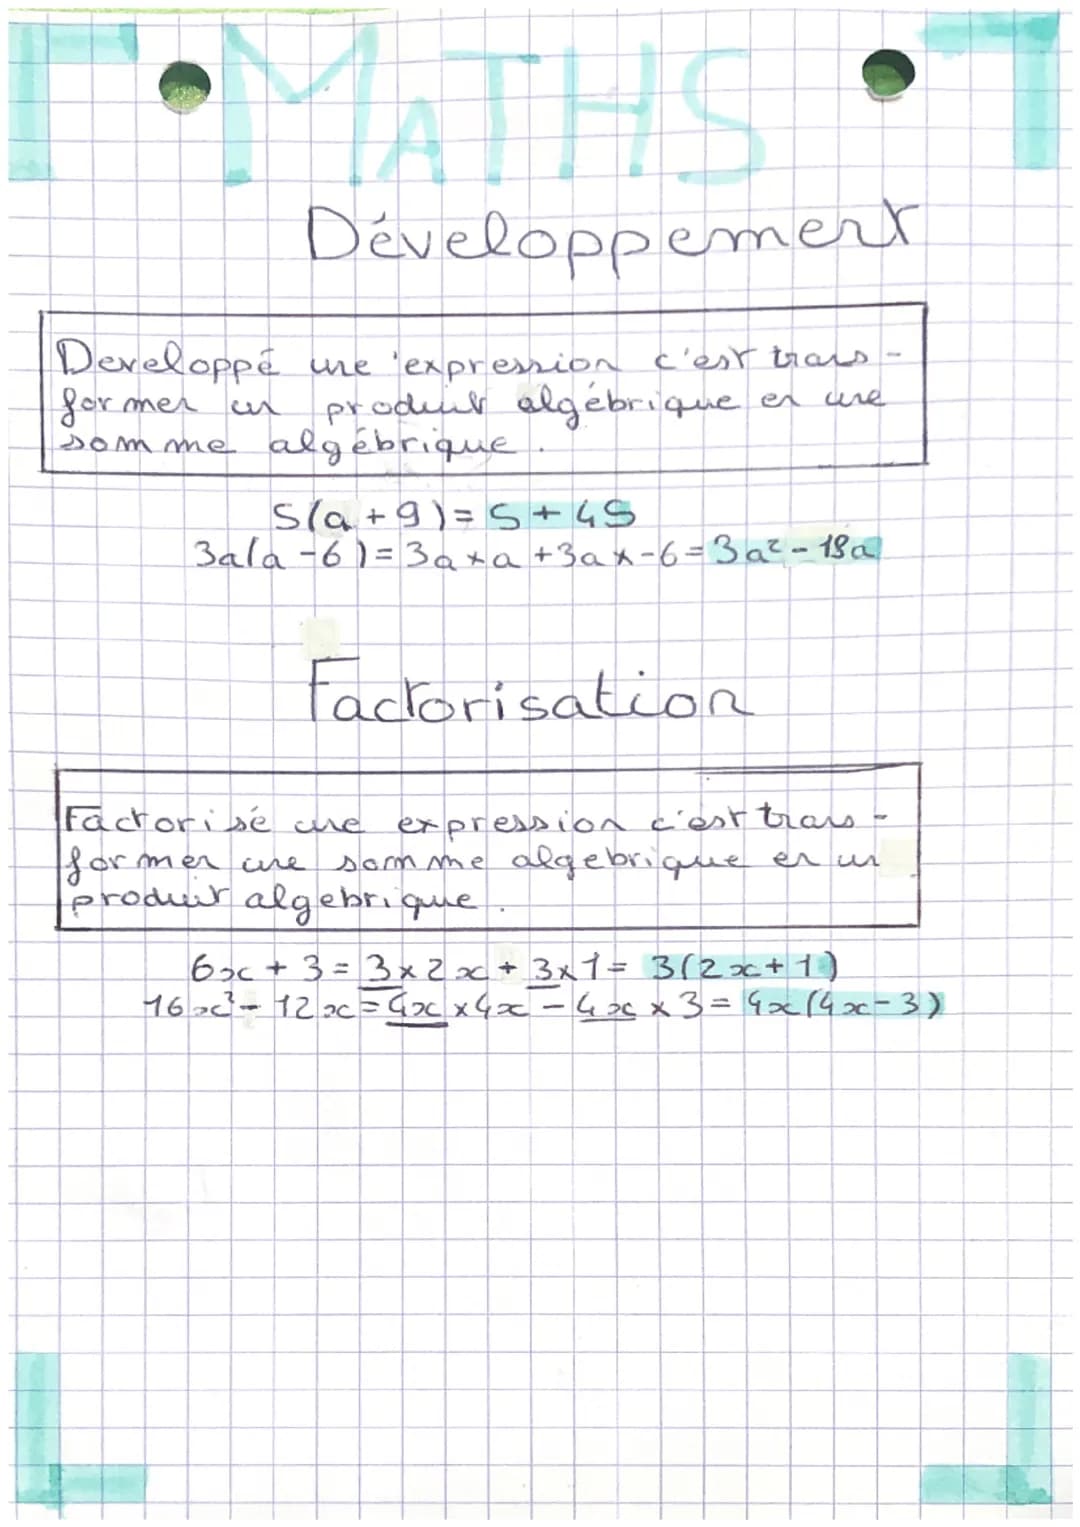 MATHS
Développement
Developpé une expression c'est trans-
former un produit algébrique en une
somme algébrique.
5(a+9)= 5+45
3a(a-6)= 3a×a+3a×-6=3a²-18a
Factorisation
Factorisé une expression c'est trans-
former une somme algebrique en un
produit algebrique.
6x+3=3×2x+3×1= 3(2x+1)
16x²-12x=4x×4x-4x×3= 4x(4x-3)